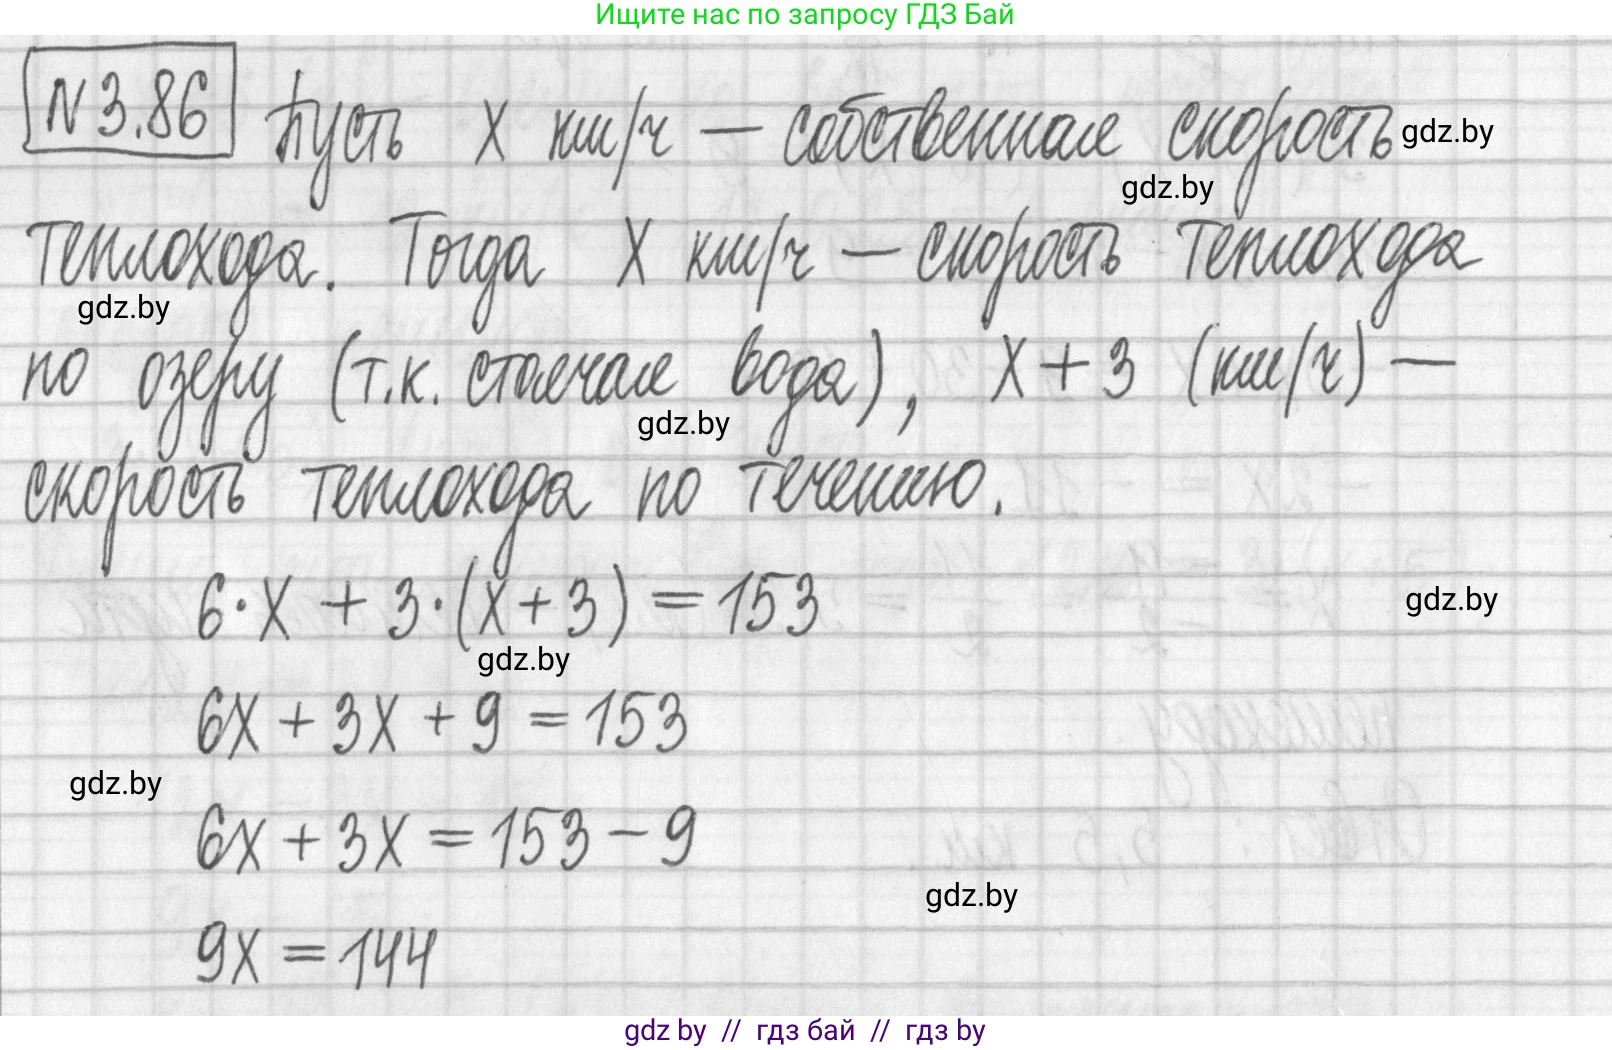 Ищите нас по запросу ГДЗ Бай
N 3.86 Пусть x км/ч — собственная скорость gdz.by
gdz.by
теплохода. Тогда x км/ч — скорость теплохода
gdz.by
по озеру (т.к. стоячая вода), x + 3 (км/ч) —
gdz.by
скорость теплохода по течению.
6·x + 3·(x+3) = 153
gdz.by
gdz.by
6x + 3x + 9 = 153
gdz.by
6x + 3x = 153 - 9
gdz.by
9x = 144
gdz by // гдз бай // гдз by